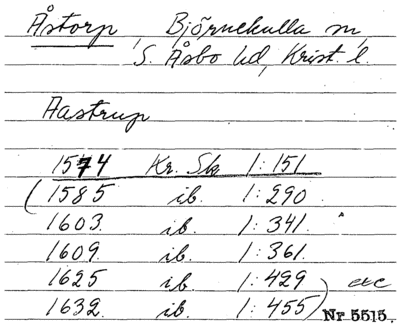 Åstorp, Björnekulla sn,
S. Åsbo hd, Krist. l.
Aastrup
1574 Kr. Sk 1:151
(1585 ib. 1:290
1603. ib. 1:341.
1609. ib. 1:361.
1625 ib. 1:429) etc
1632. ib. 1:455)
Nr 5515.